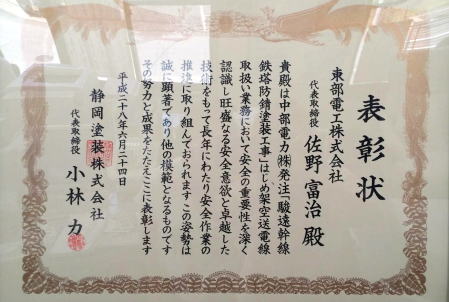 表彰状
東部電工株式会社
代表取締役 佐野富治 殿
貴殿は中部電力㈱発注「駿遠幹線
鉄塔防錆塗装工事」はじめ架空送電線
取扱い業務において安全の重要性を深く
認識し旺盛なる安全意欲と卓越した
技術をもって長年にわたり安全作業の
推進に取り組んでおられます この姿勢は
誠に顕著であり他の模範となるものです
その努力と成果をたたえここに表彰します
平成二十八年六月二十四日
静岡塗装株式会社
代表取締役 小林 力